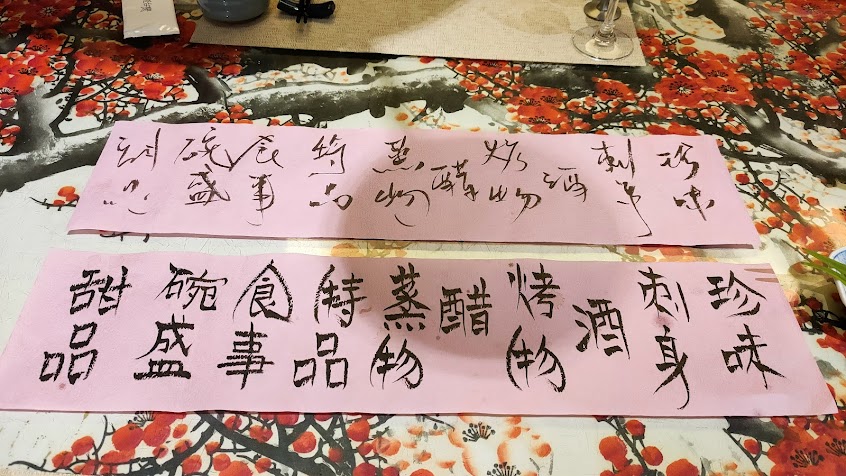 珍味
刺身
酒
烤物
醋
蒸物
特品
食事
碗盛
甜品
珍味
刺身
酒
烤物
醋
蒸物
特品
食事
碗盛
甜品